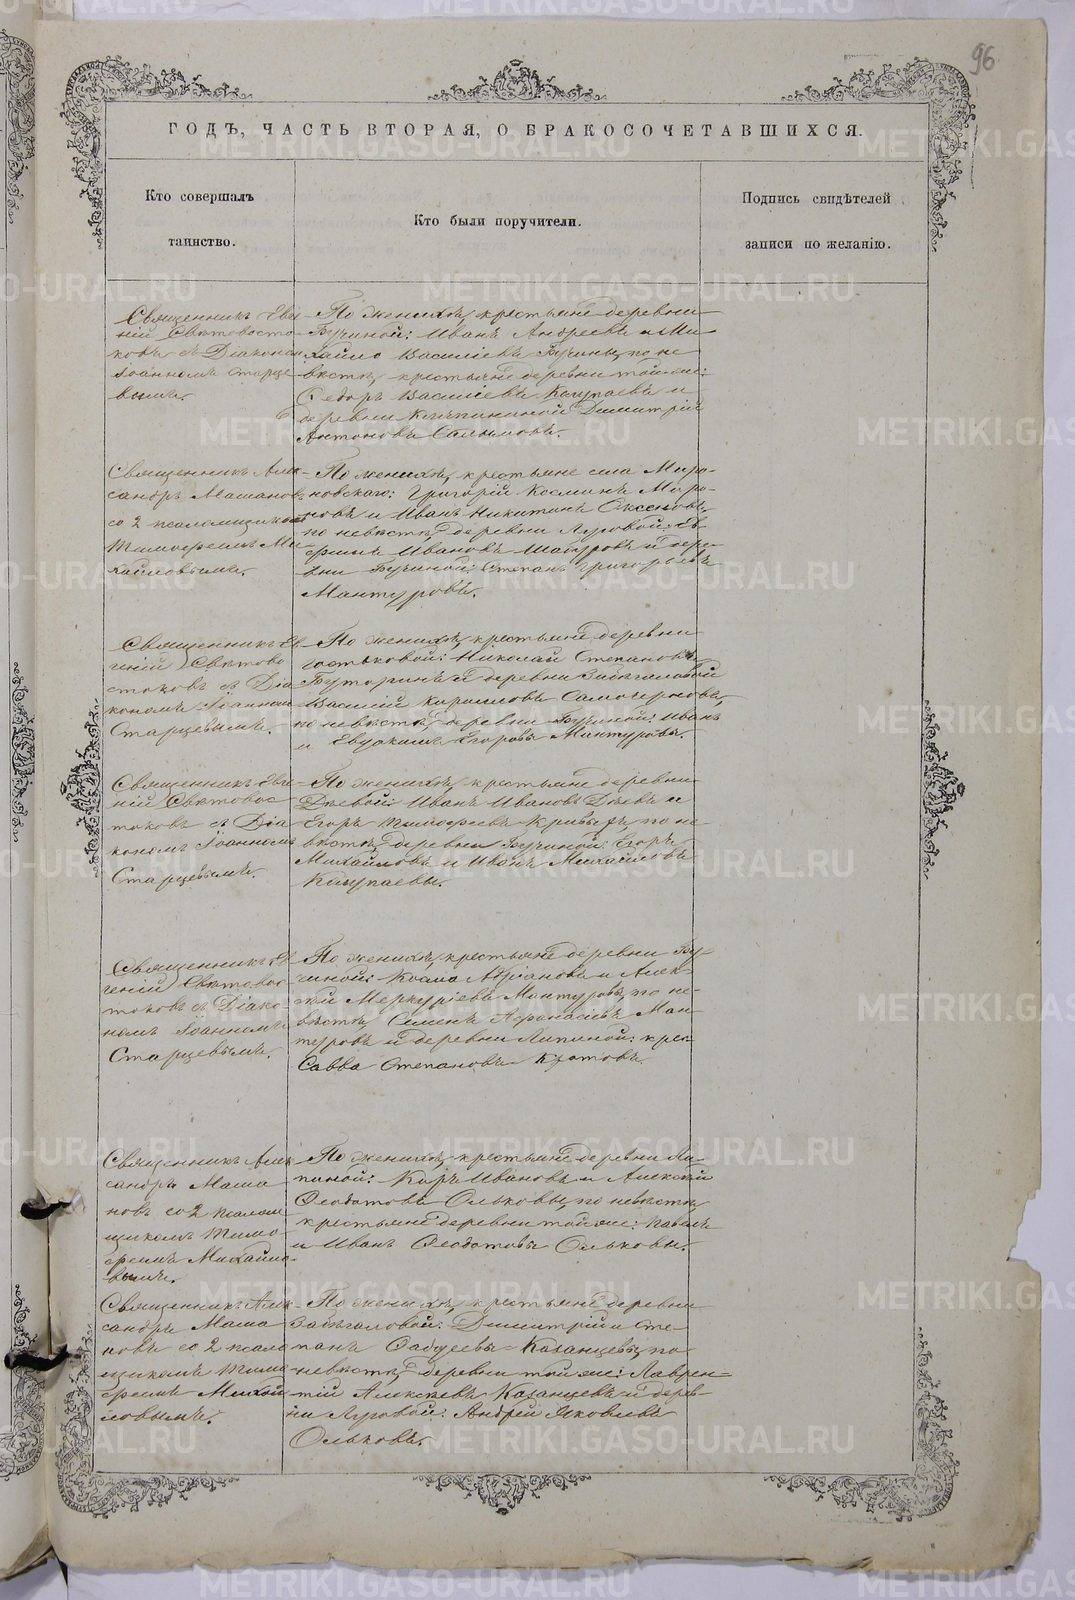 96
ГОДЪ, ЧАСТЬ ВТОРАЯ, О БРАКОСОЧЕТАВШИХСЯ.
Кто совершалъ
таинство.
Кто были поручители.
Подпись свидѣтелей
записи по желанію.
Священникъ Евге-
ній Святовосто-
ковъ съ Діакономъ
Іоанномъ Старце-
вымъ.
По женихѣ, крестьяне деревни
Бучиной: Иванъ Андреевъ и Ми-
хайло Василіевъ Бучины, по не-
вѣстѣ, крестьяне деревни той же:
Ѳедоръ Василіевъ Калупаевъ и
деревни Димитрій
Антоновъ
Священникъ Алек-
сандръ Машановъ
со 2 псаломщикомъ
Тимоѳеемъ Ми-
хайловымъ.
По женихѣ, крестьяне села Миро-
новскаго: Григорій Косминъ Миро-
новъ и Иванъ Никитинъ Аксеновъ,
по невѣстѣ, деревни Луговой: Еѳ-
Ивановъ Шабуровъ и дере-
вни Бучиной: Степанъ Григорьевъ
Мантуровъ.
Священникъ Ев-
геній Святово-
стоковъ съ Діа-
кономъ Іоанномъ
Старцевымъ.
По женихѣ, крестьяне деревни
Гостьковой: Николай Степановъ
Буторинъ и деревни Забѣгаловой
Василій Самочерновъ,
по невѣстѣ, деревни Бучиной: Иванъ
и Егоровы Мантуровы.
Священникъ Евге-
ній Святовос-
токовъ съ Діа-
кономъ Іоанномъ
Старцевымъ.
По женихѣ, крестьяне деревни
Дѣевой: Иванъ Ивановъ Дѣевъ и
Егоръ Тимоѳеевъ Кривыхъ, по не-
вѣстѣ, деревни Бучиной: Егоръ
Михайловъ и Иванъ Михайловъ
Калупаевы.
Священникъ Ев-
геній Святовос-
токовъ съ Діако-
номъ Іоанномъ
Старцевымъ.
По женихѣ, крестьяне деревни Бу-
чиной: Косма Адріановъ и Алек-
сѣй Меркуріевъ Мантуровы, по не-
вѣстѣ, Семенъ Аѳанасіевъ Ман-
туровъ и деревни Липиной: крес.
Савва Степановъ
Священникъ Алек-
сандръ Маша-
новъ со 2 псалом-
щикомъ Тимо-
ѳеемъ Михайло-
вымъ.
По женихѣ, крестьяне деревни Ли-
пиной: Ивановъ и Алексѣй
Ѳеодотовъ Ольковы, по невѣстѣ,
крестьяне деревни той же: Павелъ
и Иванъ Ѳеодотовы Ольковы.
Священникъ Алек-
сандръ Маша-
новъ со 2 псало-
мщикомъ Тимо-
ѳеемъ Михай-
ловымъ.
По женихѣ, крестьяне деревни
Забѣгаловой: Димитрій и Сте-
панъ Ѳадѣевы Казанцевы, по
невѣстѣ, деревни той же: Лаврен-
тій Алексѣевъ Казанцевъ и дерев-
ни Луговой: Андрей Яковлевъ
Ольковъ.
METRIKI.GASO-URAL.RU